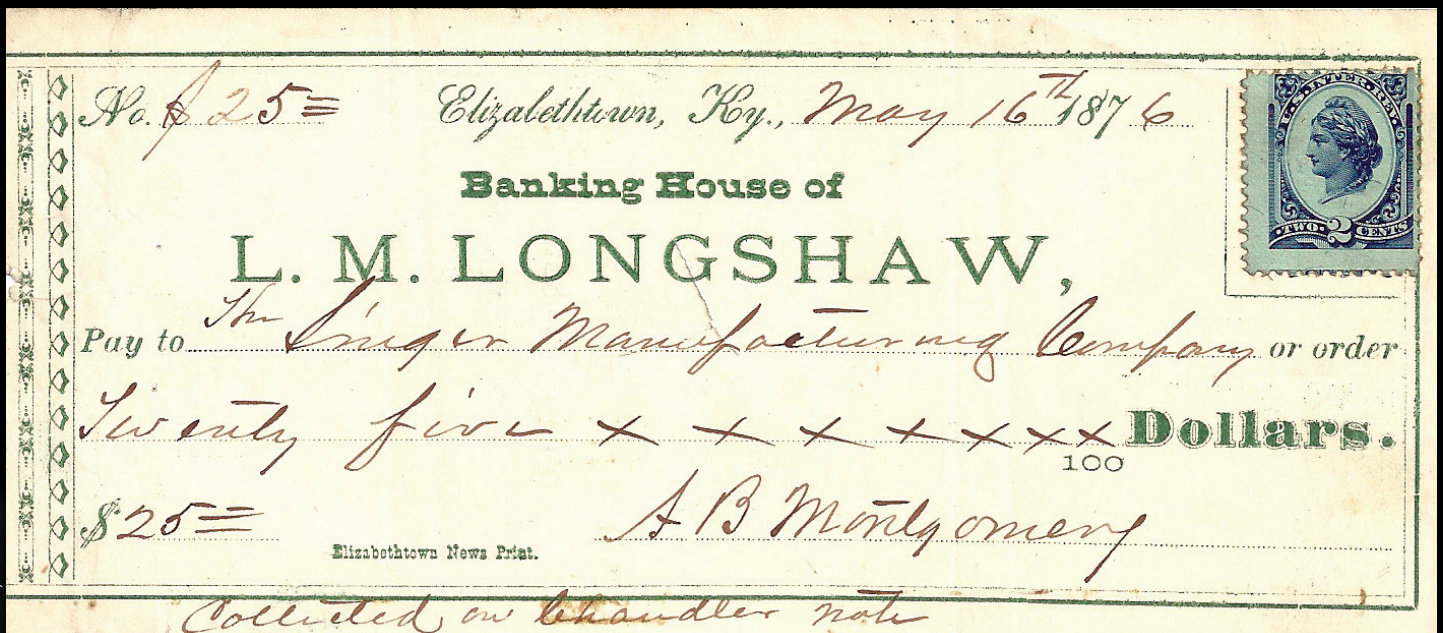 No. $ 25= Elizabethtown, Ky., May 16th 1876
U.S. INTER. REV.
TWO 2 CENTS
Banking House of
L. M. LONGSHAW,
Pay to The Singer Manufacturing Company or order
Twenty five x x x x x x x Dollars.
100
$25= A B Montgomery
Elizabethtown News Print.
Collected on Chandler note